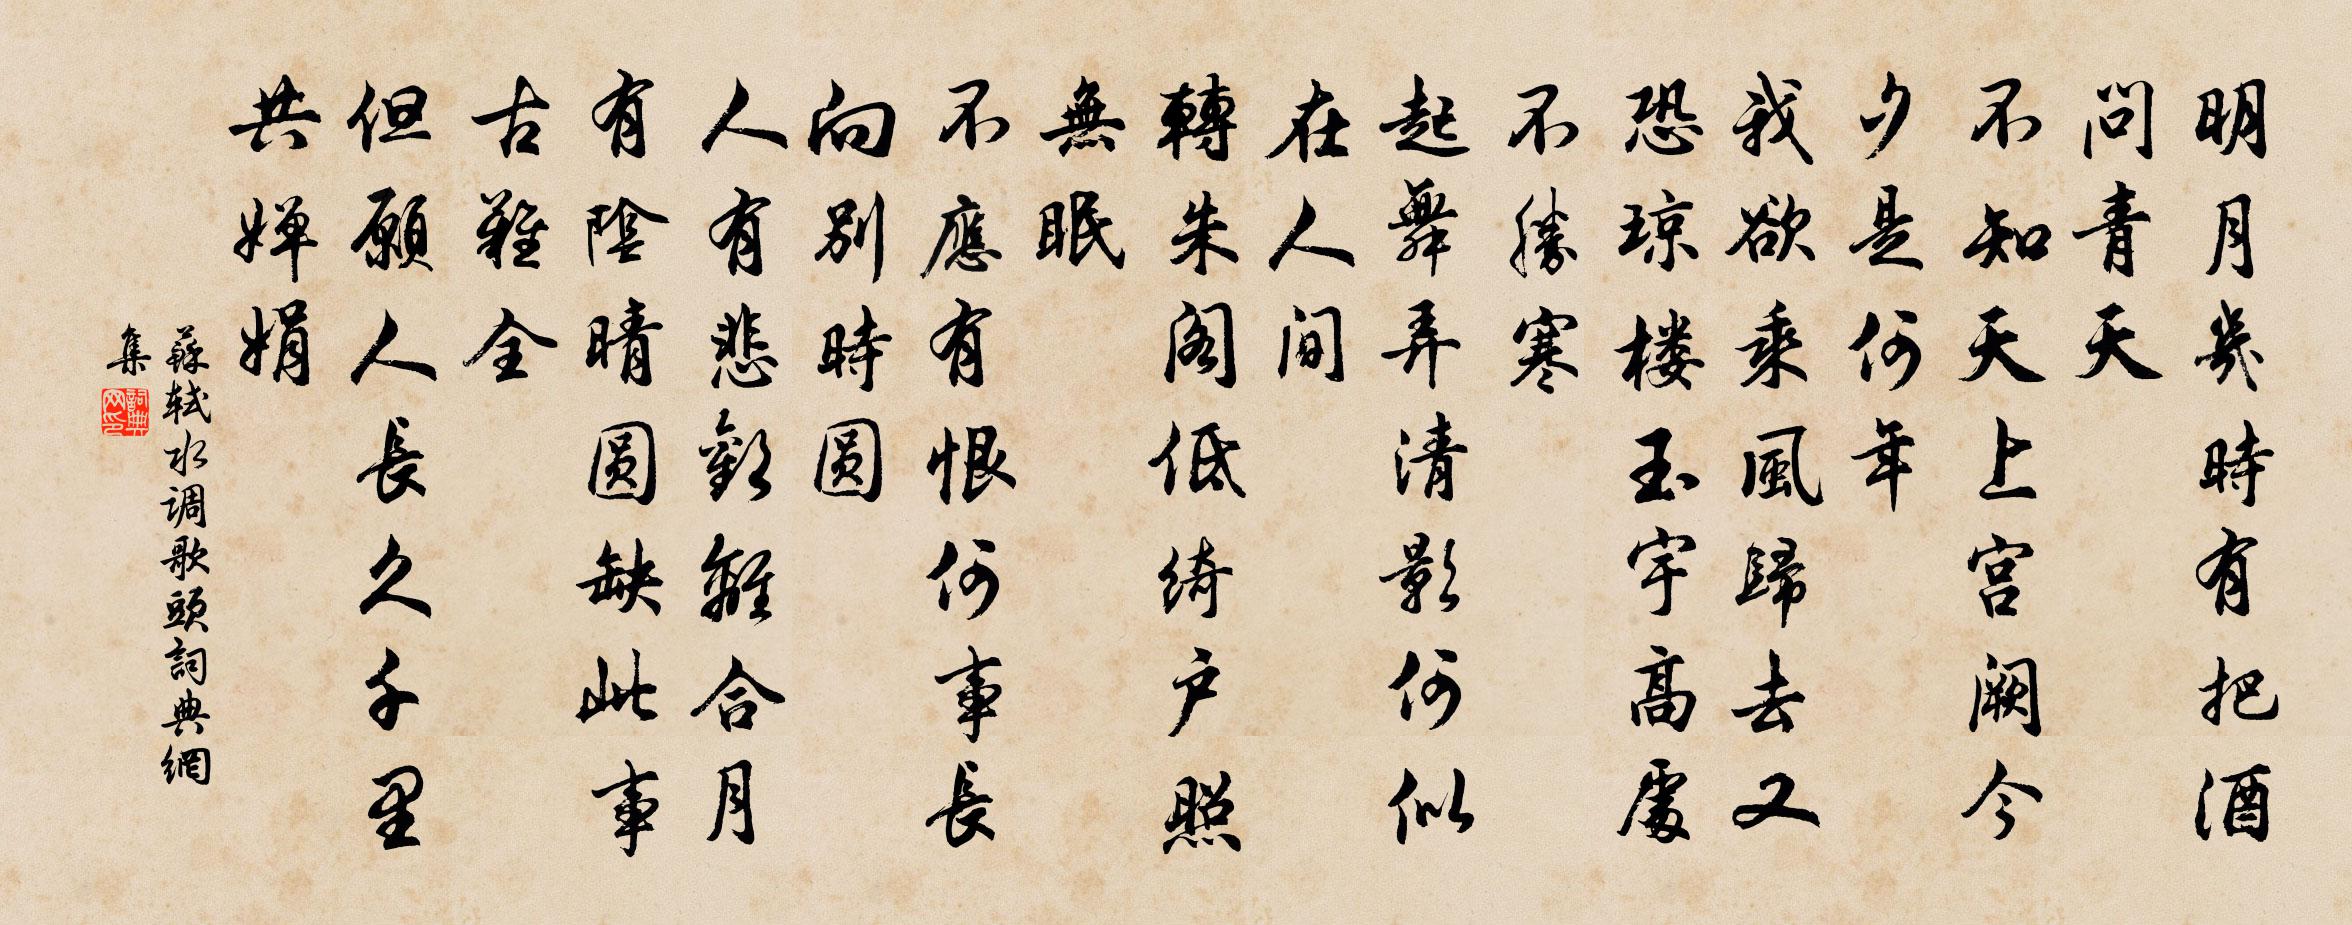 明月幾時有把酒
問青天
不知天上宫阙今
夕是何年
我欲乘風歸去又
恐琼楼玉宇高處
不勝寒
起舞弄清影何似
在人间
轉朱阁低绮户照
無眠
不應有恨何事長
向别時圆
人有悲歡離合月
有陰晴圆缺此事
古難全
但願人長久千里
共婵娟
蘇轼水调歌頭詞典網
集
詞典
网印